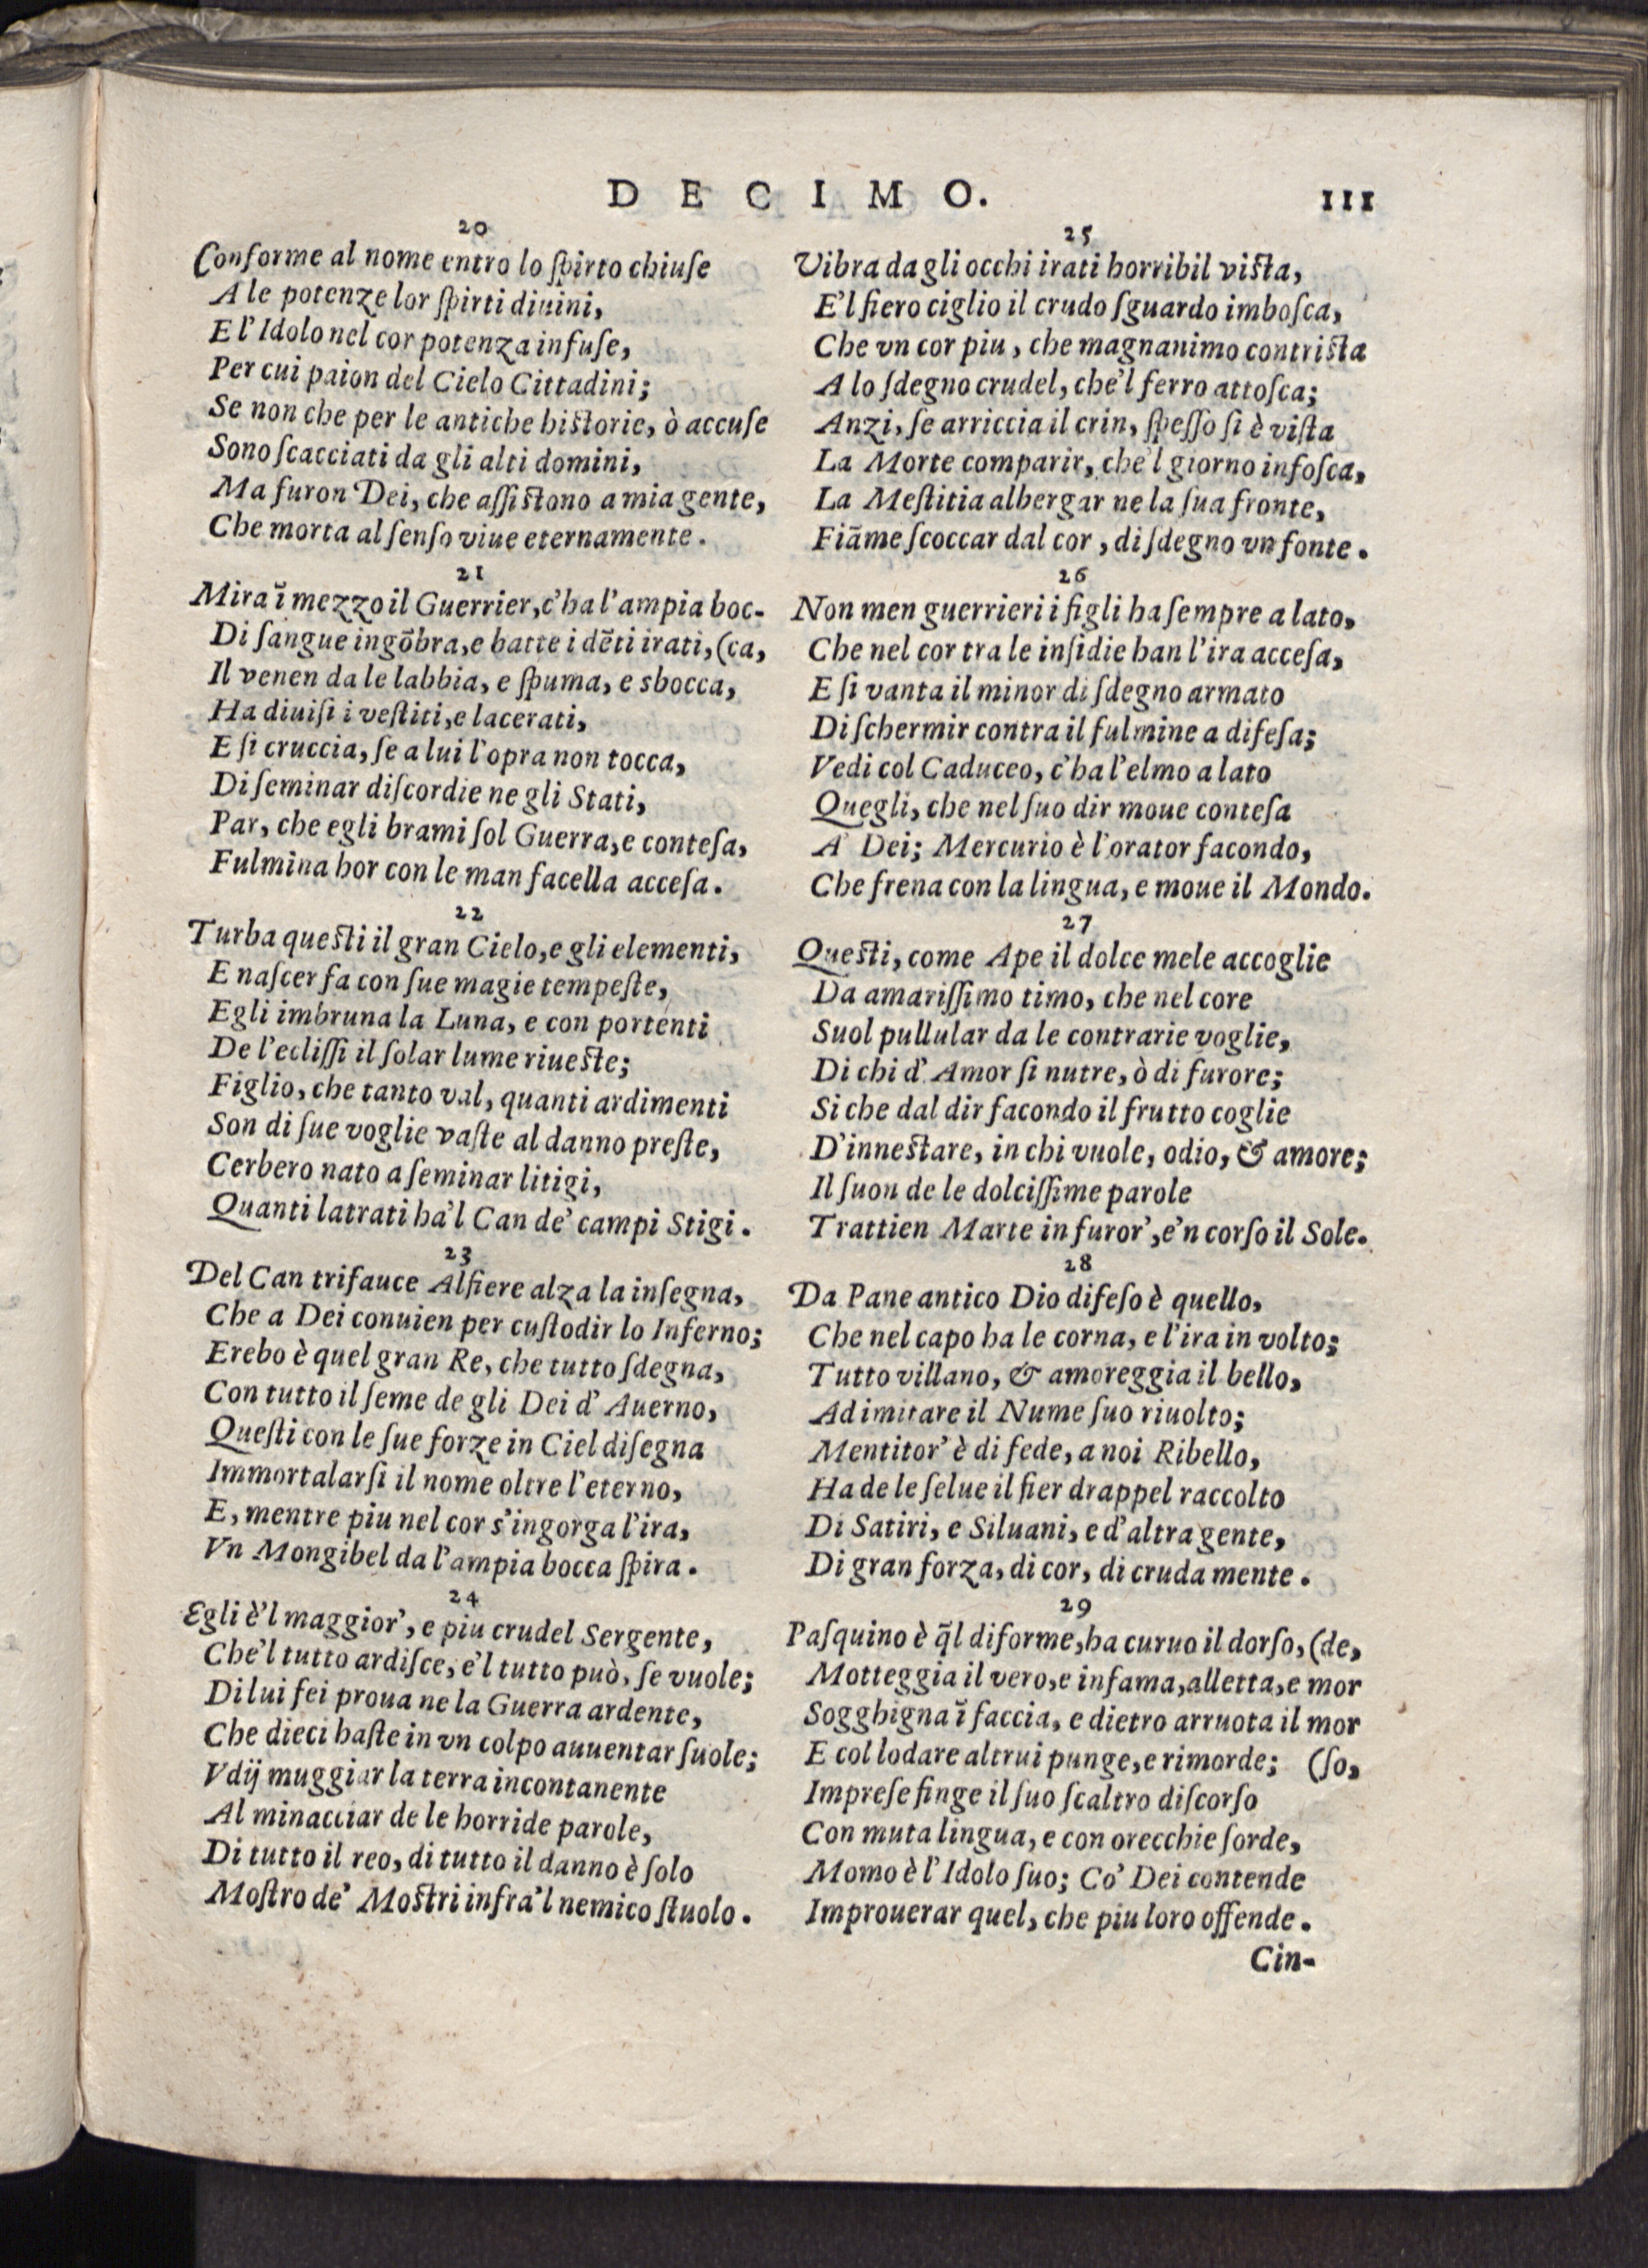 DECIMO. 111
20
Conforme al nome entro lo ſpirto chiuſe
A le potenze lor ſpirti diuini,
E l'Idolo nel cor potenza infuſe,
Per cui paion del Cielo Cittadini;
Se non che per le antiche hiſtorie, ò accuſe
Sono ſcacciati da gli alti domini,
Ma furon Dei, che aſſiſtono a mia gente,
Che morta al ſenſo viue eternamente.
21
Mira ĩ mezzo il Guerrier, c'ha l'ampia boc-
Di ſangue ingõbra, e batte i dẽti irati, (ca,
Il venen da le labbia, e ſpuma, e sbocca,
Ha diuiſi i veſtiti, e lacerati,
E ſi cruccia, ſe a lui l'opra non tocca,
Di ſeminar diſcordie ne gli Stati,
Par, che egli brami ſol Guerra, e conteſa,
Fulmina hor con le man facella acceſa.
22
Turba queſti il gran Cielo, e gli elementi,
E naſcer fa con ſue magie tempeſte,
Egli imbruna la Luna, e con portenti
De l'ecliſſi il ſolar lume riueſte;
Figlio, che tanto val, quanti ardimenti
Son di ſue voglie vaſte al danno preſte,
Cerbero nato a ſeminar litigi,
Quanti latrati ha'l Can de' campi Stigi.
23
Del Can trifauce Alfiere alza la inſegna,
Che a Dei conuien per cuſtodir lo Inferno;
Erebo è quel gran Re, che tutto ſdegna,
Con tutto il ſeme de gli Dei d'Auerno,
Queſti con le ſue forze in Ciel diſegna
Immortalarſi il nome oltre l'eterno,
E, mentre piu nel cor s'ingorga l'ira,
Vn Mongibel da l'ampia bocca ſpira.
24
Egli è'l maggior', e piu crudel Sergente,
Che'l tutto ardiſce, e'l tutto può, ſe vuole;
Di lui fei proua ne la Guerra ardente,
Che dieci haſte in vn colpo auuentar ſuole;
Vdij muggiar la terra incontanente
Al minacciar de le horride parole,
Di tutto il reo, di tutto il danno è ſolo
Moſtro de' Moſtri infra'l nemico ſtuolo.
25
Vibra da gli occhi irati horribil viſta,
E'l fiero ciglio il crudo ſguardo imboſca,
Che vn cor piu, che magnanimo contriſta
A lo ſdegno crudel, che'l ferro attoſca;
Anzi, ſe arriccia il crin, ſpeſſo ſi è viſta
La Morte comparir, che'l giorno infoſca,
La Meſtitia albergar ne la ſua fronte,
Fiãme ſcoccar dal cor, di ſdegno vn fonte.
26
Non men guerrieri i figli ha ſempre a lato,
Che nel cor tra le inſidie han l'ira acceſa,
E ſi vanta il minor di ſdegno armato
Di ſchermir contra il fulmine a difeſa;
Vedi col Caduceo, c'ha l'elmo a lato
Quegli, che nel ſuo dir moue conteſa
A' Dei; Mercurio è l'orator facondo,
Che frena con la lingua, e moue il Mondo.
27
Queſti, come Ape il dolce mele accoglie
Da amariſſimo timo, che nel core
Suol pullular da le contrarie voglie,
Di chi d'Amor ſi nutre, ò di furore;
Si che dal dir facondo il frutto coglie
D'inneſtare, in chi vuole, odio, & amore;
Il ſuon de le dolciſſime parole
Trattien Marte in furor', e'n corſo il Sole.
28
Da Pane antico Dio difeſo è quello,
Che nel capo ha le corna, e l'ira in volto;
Tutto villano, & amoreggia il bello,
Ad imitare il Nume ſuo riuolto;
Mentitor' è di fede, a noi Ribello,
Ha de le ſelue il fier drappel raccolto
Di Satiri, e Siluani, e d'altra gente,
Di gran forza, di cor, di cruda mente.
29
Paſquino è q̃l diforme, ha curuo il dorſo, (de,
Motteggia il vero, e infama, alletta, e mor
Sogghigna ĩ faccia, e dietro arruota il mor
E col lodare altrui punge, e rimorde; (ſo,
Impreſe finge il ſuo ſcaltro diſcorſo
Con muta lingua, e con orecchie ſorde,
Momo è l'Idolo ſuo; Co' Dei contende
Improuerar quel, che piu loro offende.
Cin-